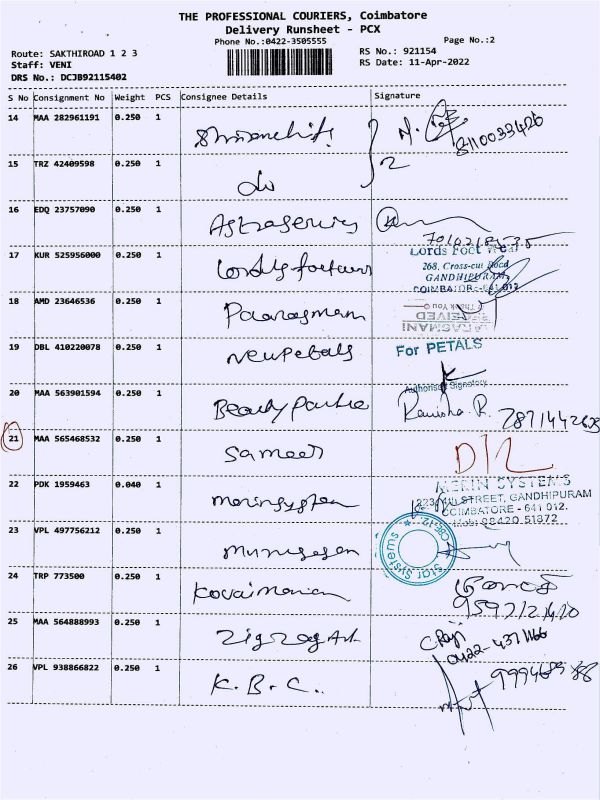 THE PROFESSIONAL COURIERS, Coimbatore
Delivery Runsheet - PCX
Phone No.:0422-3505555
Page No.:2
Route: SAKTHIROAD 1 2 3
RS No.: 921154
Staff: VENI
RS Date: 11-Apr-2022
DRS No.: DCJB92115402
S No Consignment No Weight PCS Consignee Details Signature
14 MAA 282961191 0.250 1
8110033426
15 TRZ 42409598 0.250 1 do 2
16 EDQ 23757090 0.250 1 Astraservies
17 KUR 525956000 0.250 1 Lords footwears
Lords Foot Wear
268, Cross-cut Road
GANDHIPURAM,
COIMBATORE-641 012
18 AMD 23646536 0.250 1 Paarasmani
Thank You
RECEIVED
PAARASMANI
19 DBL 410220078 0.250 1 Newpetals
For PETALS
Authorised Signatory
20 MAA 563901594 0.250 1 Beauty Parlre
R.
21 MAA 565468532 0.250 1 Sameer
D/L
22 PDK 1959463 0.040 1
MERIN SYSTEMS
STREET, GANDHIPURAM
COIMBATORE - 641 012.
Mob: 98420 51972
23 VPL 497756212 0.250 1 Murugesan
Star Systems
CBE-12
24 TRP 773500 0.250 1
25 MAA 564888993 0.250 1 Zigzag Art
0422-4371166
26 VPL 938866822 0.250 1 K.B.C..